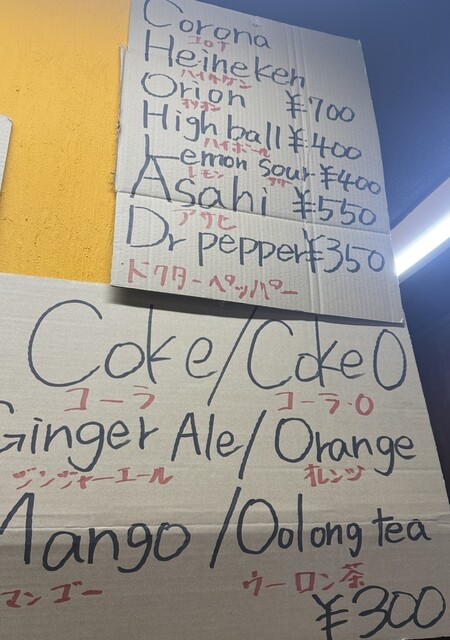 Corona
コロナ
Heineken
ハイネケン
Orion ¥700
オリオン
Highball ¥400
ハイボール
Lemon sour ¥400
レモン サワー
Asahi ¥550
アサヒ
Dr pepper ¥350
ドクターペッパー
Coke/Coke 0
コーラ コーラ・0
Ginger Ale/Orange
ジンジャーエール オレンジ
Mango/Oolong tea
マンゴー ウーロン茶
¥300